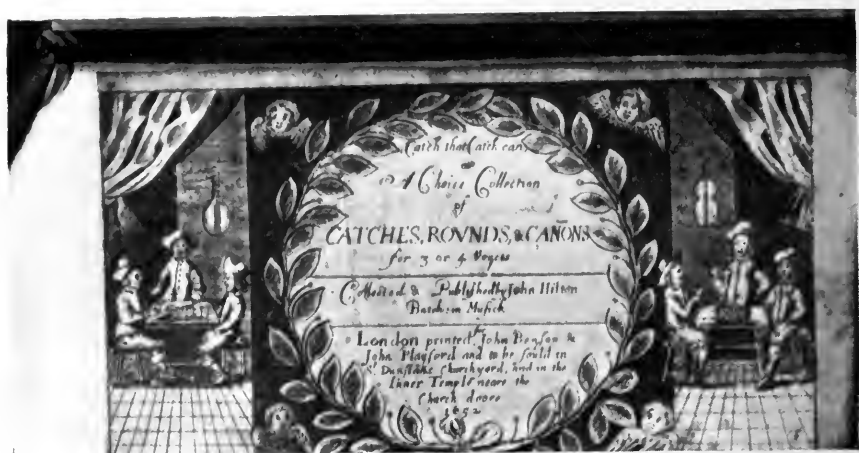 Catch that Catch can
or
A Choice Collection
of
CATCHES, ROVNDS, & CAÑONS
for 3 or 4 Voyces
Collected & Published by John Hilton
Batch: in Musick
London printed for John Benson &
John Playford and to be sould in
St Dunstans Churchyard, and in the
Inner Temple neare the
Church doore
1652